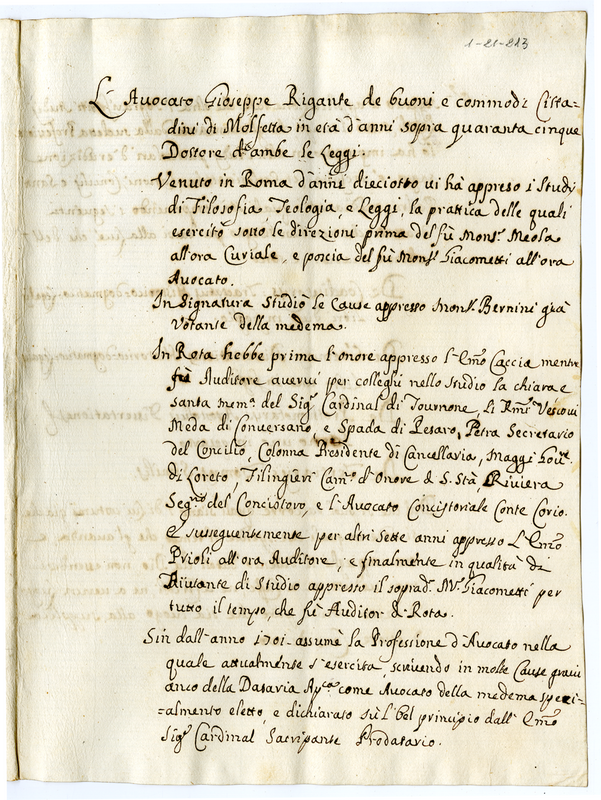 1-21-213
L'Avocato Gioseppe Rigante de buoni e commodi Citta=
dini di Molfetta in età d'anni sopra quaranta cinque
Dottore d'ambe le Leggi.
Venuto in Roma d'anni dieciotto vi hà appreso i Study
di Filosofia Teologia, e Leggi, la prattica delle quali
esercitò sotto le direzioni prima del fù Monsr. Meola
all'ora Curiale, e poscia del fù Monsr. Giacometti all'ora
Avocato.
In Signatura studiò le Cause appresso Monsr. Bernini già
Votante della medema.
In Rota hebbe prima l'onore appresso l'Emo Caccia mentre
fù Auditore avervi per colleghi nello Studio la chiara e
santa mema. del Sigr. Cardinal di Tournone, li Rmi Vescovi
Meda di Conversano, e Spada di Pesaro, Petra Secretario
del Concilio, Colonna Presidente di Cancellaria, Maggi Govre.
di Loreto, Filingieri Camo. d'Onore di S. Stà, Riviera
Segrio del Concistoro, e l'Avocato Concistoriale Conte Corio.
E susseguentemente per altri sette anni appresso l'Emo
Prioli all'ora Auditore, e finalmente in qualità di
Aiutante di Studio appresso il soprado. Mr. Giacometti per
tutto il tempo, che fù Auditor di Rota.
Sin dall'anno 1701 assumè la Professione d'Avocato nella
quale attualmente s'esercita, scrivendo in molte Cause gravi
anco della Dataria Apca come Avocato della medema speci=
=almente eletto, e dichiarato sù l'bel principio dall' Emo
Sigr Cardinal Sacripante Prodatario.